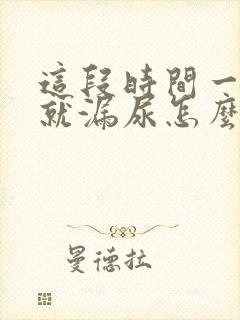 這段時間一
就漏尿怎麼
曼德拉